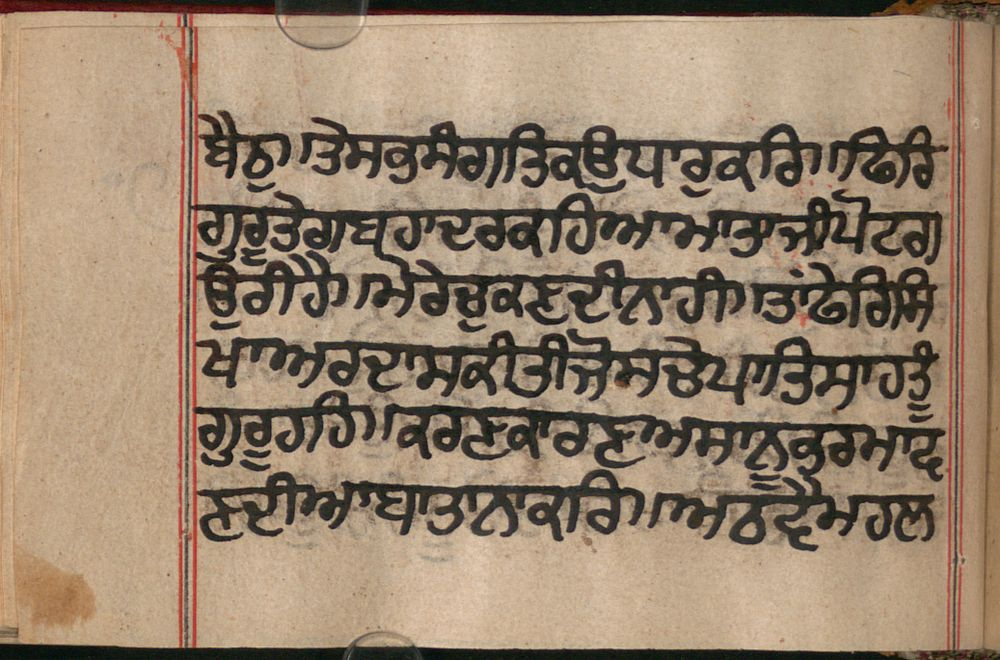 ਬੈਠੁ॥ਤੇਸਭਸੰਗਤਿਕਉਧਾਰੁਕਰਿ॥ਫਿਰਿ
ਗੁਰੂਤੇਗਬਹਾਦਰਕਹਿਆਮਾਤਾਜੀਪੋਟਗ
ਉਰੀਹੈ॥ਮੇਰੇਚੁਕਣਦੀਨਾਹੀ॥ਤਾਂਫੇਰਿਸਿ
ਖਾਅਰਦਾਸਕੀਤੀਜੋਸਚੇਪਾਤਿਸਾਹਤੂੰ
ਗੁਰੂਹਹਿ॥ਕਰਣਕਾਰਣਅਸਾਨੂਭੁਰਮਾਵ
ਣਦੀਆਬਾਤਾਨਾਕਰਿ॥ਅਠਵੈਮਹਲ